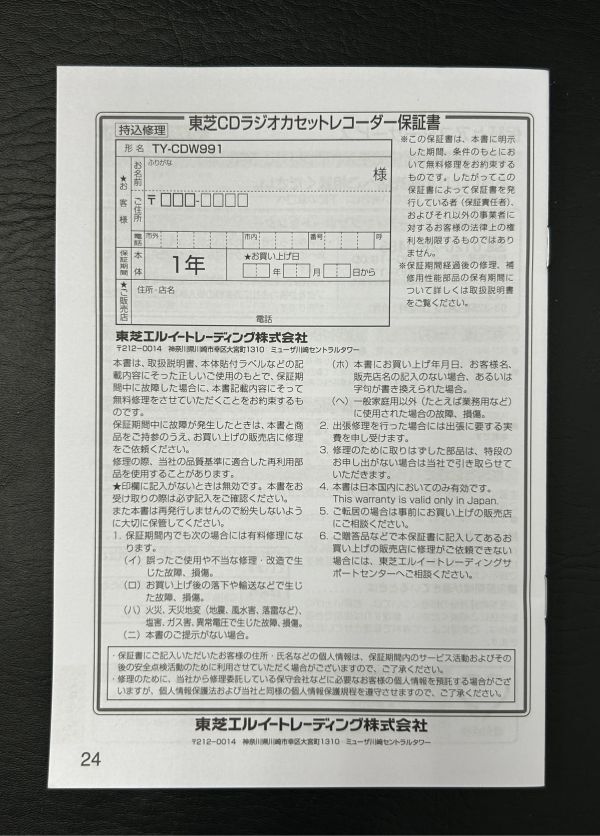 東芝CDラジオカセットレコーダー保証書
持込修理
形名 TY-CDW991
★お客様
お名前
ふりがな
様
ご住所
〒□□□-□□□□
電話
市外
市内
番号
呼
保証期間
本体
1年
★お買い上げ日
年 月 日から
★ご販売店
住所・店名
電話
※この保証書は、本書に明示
した期間、条件のもとにお
いて無料修理をお約束する
ものです。したがってこの
保証書によって保証書を発
行している者(保証責任者)、
およびそれ以外の事業者に
対するお客様の法律上の権
利を制限するものではあり
ません。
※保証期間経過後の修理、補
修用性能部品の保有期間に
ついて詳しくは取扱説明書
をご覧ください。
東芝エルイートレーディング株式会社
〒212-0014 神奈川県川崎市幸区大宮町1310 ミューザ川崎セントラルタワー
本書は、取扱説明書、本体貼付ラベルなどの記
載内容にそった正しいご使用のもとで、保証期
間中に故障した場合に、本書記載内容にそって
無料修理をさせていただくことをお約束するも
のです。
保証期間中に故障が発生したときは、本書と商
品をご持参のうえ、お買い上げの販売店に修理
をご依頼ください。
修理の際、当社の品質基準に適合した再利用部
品を使用することがあります。
★印欄に記入がないときは無効です。本書をお
受け取りの際は必ず記入をご確認ください。
また本書は再発行しませんので紛失しないよう
に大切に保管してください。
1. 保証期間内でも次の場合には有料修理にな
ります。
(イ) 誤ったご使用や不当な修理・改造で生
じた故障、損傷。
(ロ) お買い上げ後の落下や輸送などで生じ
た故障、損傷。
(ハ) 火災、天災地変(地震、風水害、落雷など)、
塩害、ガス害、異常電圧で生じた故障、損傷。
(ニ) 本書のご提示がない場合。
(ホ) 本書にお買い上げ年月日、お客様名、
販売店名の記入のない場合、あるいは
字句が書き換えられた場合。
(ヘ) 一般家庭用以外(たとえば業務用など)
に使用された場合の故障、損傷。
2. 出張修理を行った場合には出張に要する実
費を申し受けます。
3. 修理のために取りはずした部品は、特段の
お申し出がない場合は当社で引き取らせて
いただきます。
4. 本書は日本国内においてのみ有効です。
This warranty is valid only in Japan.
5. ご転居の場合は事前にお買い上げの販売店
にご相談ください。
6. ご贈答品などで本保証書に記入してあるお
買い上げの販売店に修理がご依頼できない
場合には、東芝エルイートレーディングサ
ポートセンターへご相談ください。
・保証書にご記入いただいたお客様の住所・氏名などの個人情報は、保証期間内のサービス活動およびその
後の安全点検活動のために利用させていただく場合がございますので、ご了承ください。
・修理のために、当社から修理委託している保守会社などに必要なお客様の個人情報を預託する場合がござ
いますが、個人情報保護法および当社と同様の個人情報保護規程を遵守させますので、ご了承ください。
東芝エルイートレーディング株式会社
〒212-0014 神奈川県川崎市幸区大宮町1310 ミューザ川崎セントラルタワー
24